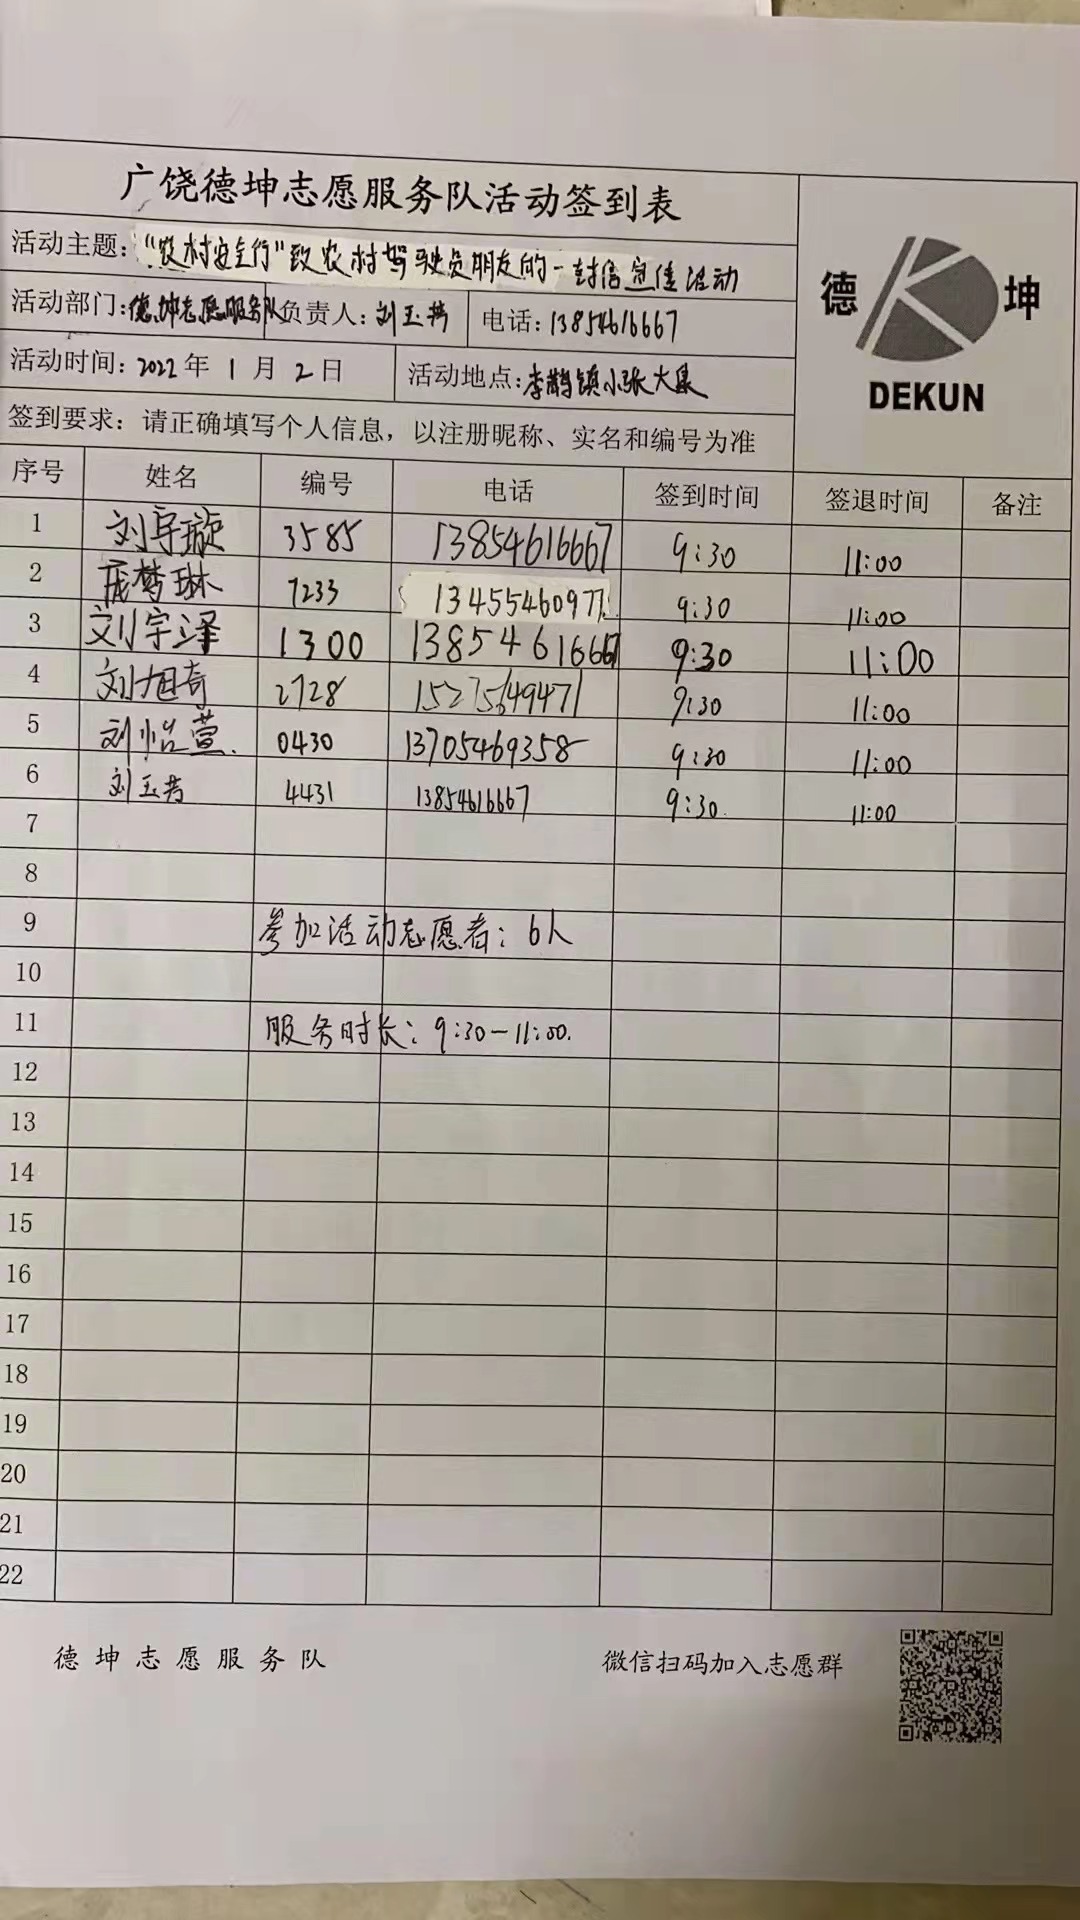 广饶德坤志愿服务队活动签到表
活动主题：“农村安全行”致农村驾驶员朋友的一封信宣传活动
德 坤
DEKUN
活动部门：德坤志愿服务队 负责人：刘玉芳 电话：13854616667
活动时间：2022年1月2日 活动地点：李鹊镇小张大集
签到要求：请正确填写个人信息，以注册昵称、实名和编号为准
序号 姓名 编号 电话 签到时间 签退时间 备注
1 刘宇璇 3585 13854616667 9:30 11:00
2 庞梦琳 7233 13455460977 9:30 11:00
3 刘宇泽 1300 13854616667 9:30 11:00
4 刘旭奇 2728 15275649471 9:30 11:00
5 刘怡萱 0430 13705469358 9:30 11:00
6 刘玉芳 4431 13854616667 9:30 11:00
7
8
9 参加活动志愿者：6人
10
11 服务时长：9:30-11:00.
12
13
14
15
16
17
18
19
20
21
22
德坤志愿服务队 微信扫码加入志愿群